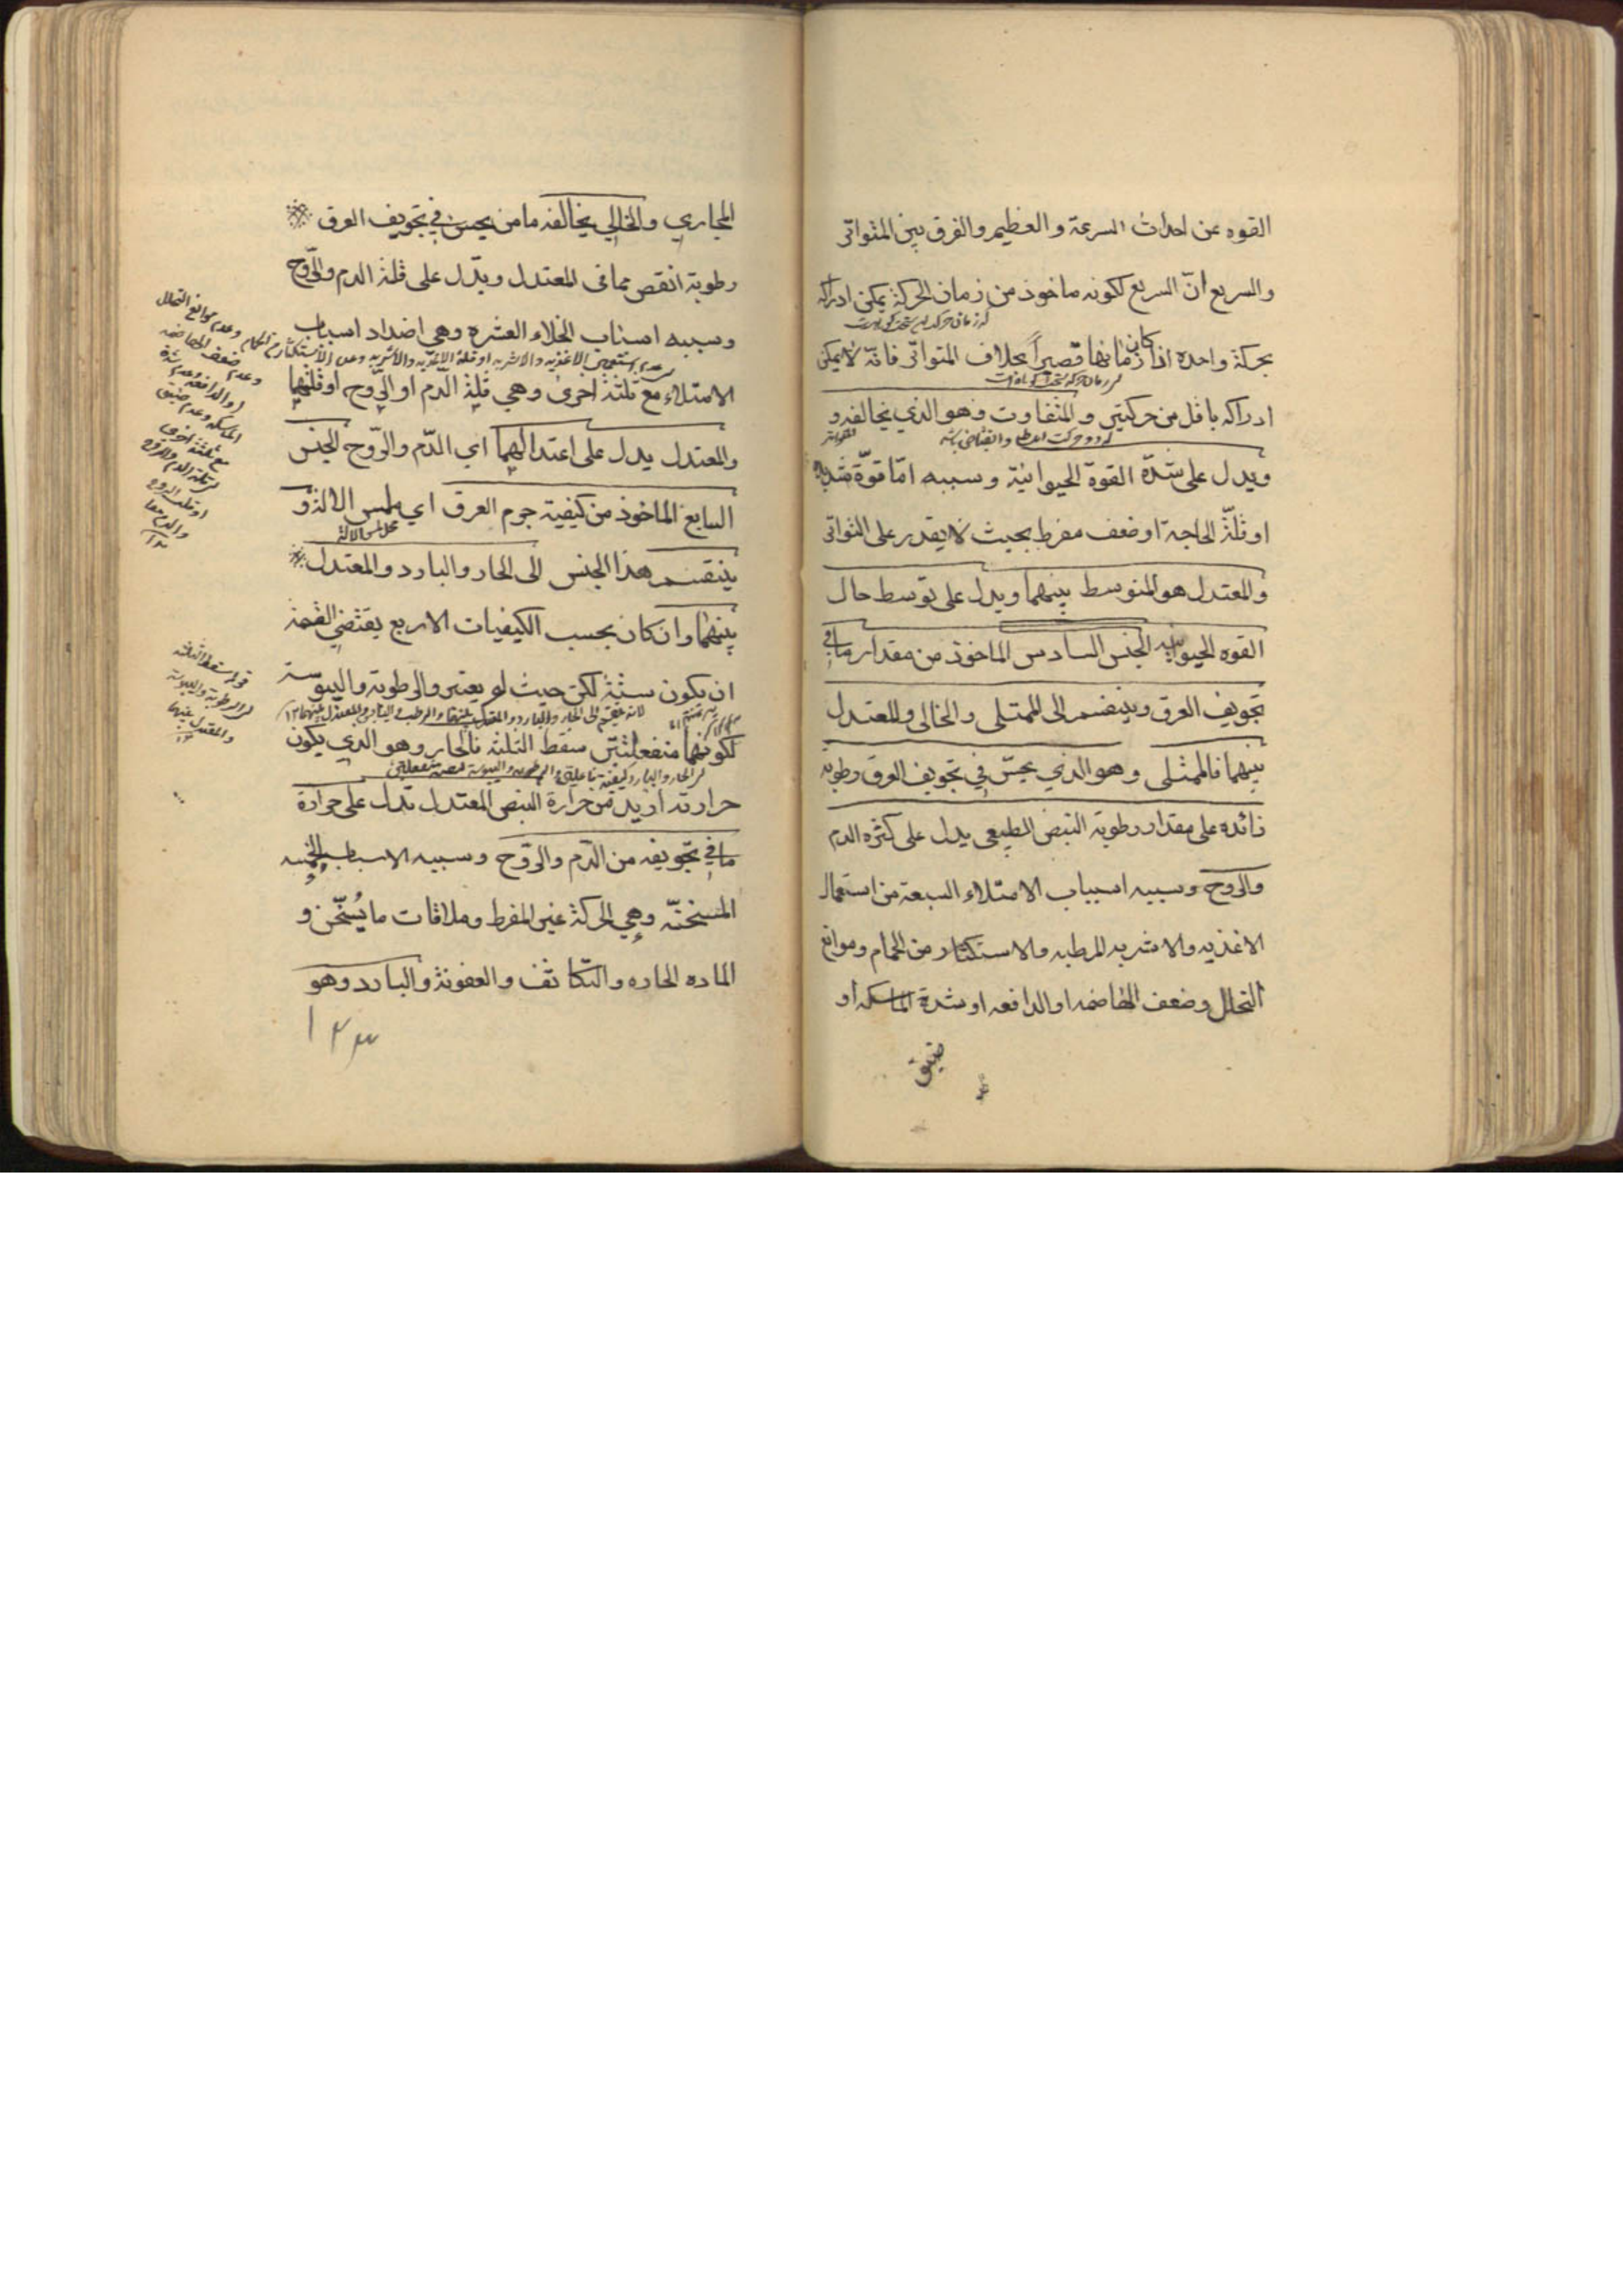 القوه عن احداث السرعة والعظيم والفرق بين المتواتر
والسريع انّ السريع لكونه ماخوذ من زمان الحركة يمكن ادراكه
بحركة واحده اذا كان زمانها قصيراً بخلاف المتواتر فانّه لا يمكن
ادراكه باقل من حركتين والمتفاوت وهو الذي يخالفه و
ويدل على شدّة القوة الحيوانية وسببه امّا قوّة شديده
او قلّة الحاجة او ضعف مفرط بحيث لا يقدر على التواتر
والمعتدل هو المتوسط بينهما ويدل على توسط حال
القوه الحيوانيه الجنس السادس الماخوذ من مقدار ما في
تجويف العرق وينقسم الى الممتلى والخالى والمعتدل
بينهما فالممتلى وهو الذي يحسّ في تجويف العرق رطوبة
زائده على مقدار رطوبة النبض الطبيعى يدل على كثره الدم
والروح وسببه اسباب الامتلاء السبعة من استعمال
الاغذيه والاشربه المرطبه والاستكثار من الحمام وموانع
التحلل وضعف الهاضمه او الدافعه او شدة الماسكه او
ضيق
المجاري والخالي يخالفه ما من يحس في تجويف العرق
رطوبة انقص مما فى المعتدل ويدّل على قلة الدم والرّوح
وسببه اسباب الخلاء العشره وهي اضداد اسباب
الامتلاء مع ثلثة اخرى وهي قلة الدّم او الرّوح او قلتهما
والمعتدل يدل على اعتدالهما اي الدّم والرّوح الجنس
السابع الماخوذ من كيفية جرم العرق اي ملمس الالة و
ينقسم هذا الجنس الى الحار والبارد والمعتدل
بينهما وان كان بحسب الكيفيات الاربع يقتضي القسمة
ان يكون ستة لكن حيث لم يعتبر والرطوبة واليبوسة
لكونهما منفعلتين سقط الثلثه فالحار وهو الذي يكون
حرارته ازيد من حرارة النبض المعتدل تدل على حرارة
ما في تجويفه من الدّم والرّوح وسببه الاسباب الخمسه
المسخنّه وهي الحركة غير المفرط وملاقات ما يُسّخن و
الماده الحاره والتكاثف والعفونة والبارد وهو
١٢٣
وعدم موانع التحلل
وعدم ضعف الهاضمه
او الدافعه وعدم شدة
الماسكه وعدم ضيق
مع ثلثة اخرى
او قلت الروح
والدم معا
١٢
قوله سقط الثلثه
الرطوبة واليبوسة
والمعتدل بينهما
١٢